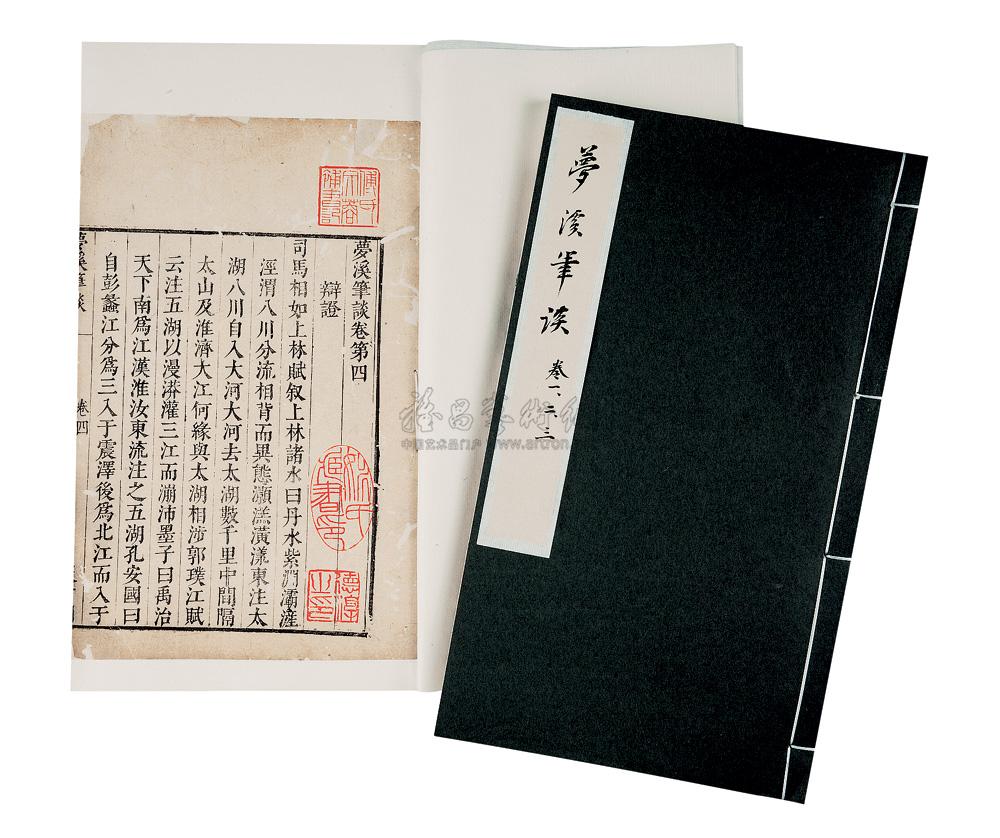 夢溪筆談卷第四
辯證
司馬相如上林賦叙上林諸水曰丹水紫淵灞滻
涇渭八川分流相背而異態灝溔潢漾東注太
湖八川自入大河大河去太湖數千里中間隔
太山及淮濟大江何緣與太湖相涉郭璞江賦
云注五湖以漫漭灌三江而漰沛墨子曰禹治
天下南爲江漢淮汝東流注之五湖孔安國曰
自彭蠡江分爲三入于震澤後爲北江而入于
夢溪筆談
卷四
德淳之印
夢溪筆談 卷一、二、三
中国艺术品门户 www.artron